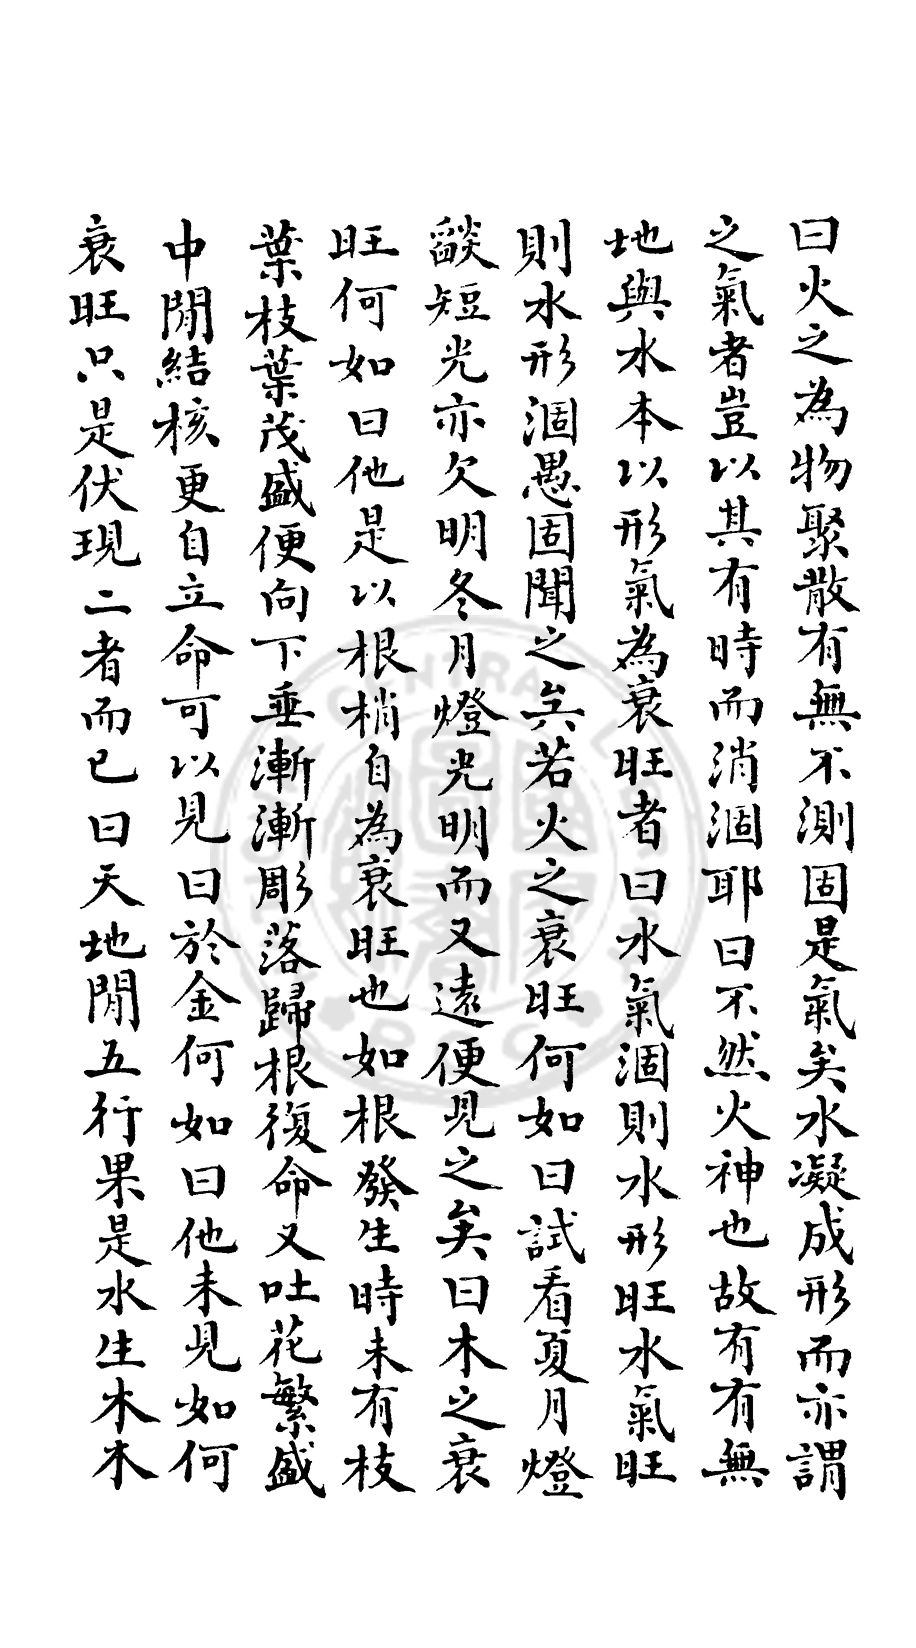 曰火之為物聚散有無不測固是氣矣水凝成形而亦謂
之氣者豈以其有時而消涸耶曰不然火神也故有有無
地與水本以形氣為衰旺者曰水氣涸則水形旺水氣旺
則水形涸愚固聞之矣若火之衰旺何如曰試看夏月燈
燄短光亦欠明冬月燈光明而又遠便見之矣曰木之衰
旺何如曰他是以根梢自為衰旺也如根發生時未有枝
葉枝葉茂盛便向下垂漸漸彫落歸根復命又吐花繁盛
中間結核更自立命可以見曰於金何如曰他未見如何
衰旺只是伏現二者而已曰天地間五行果是水生木木